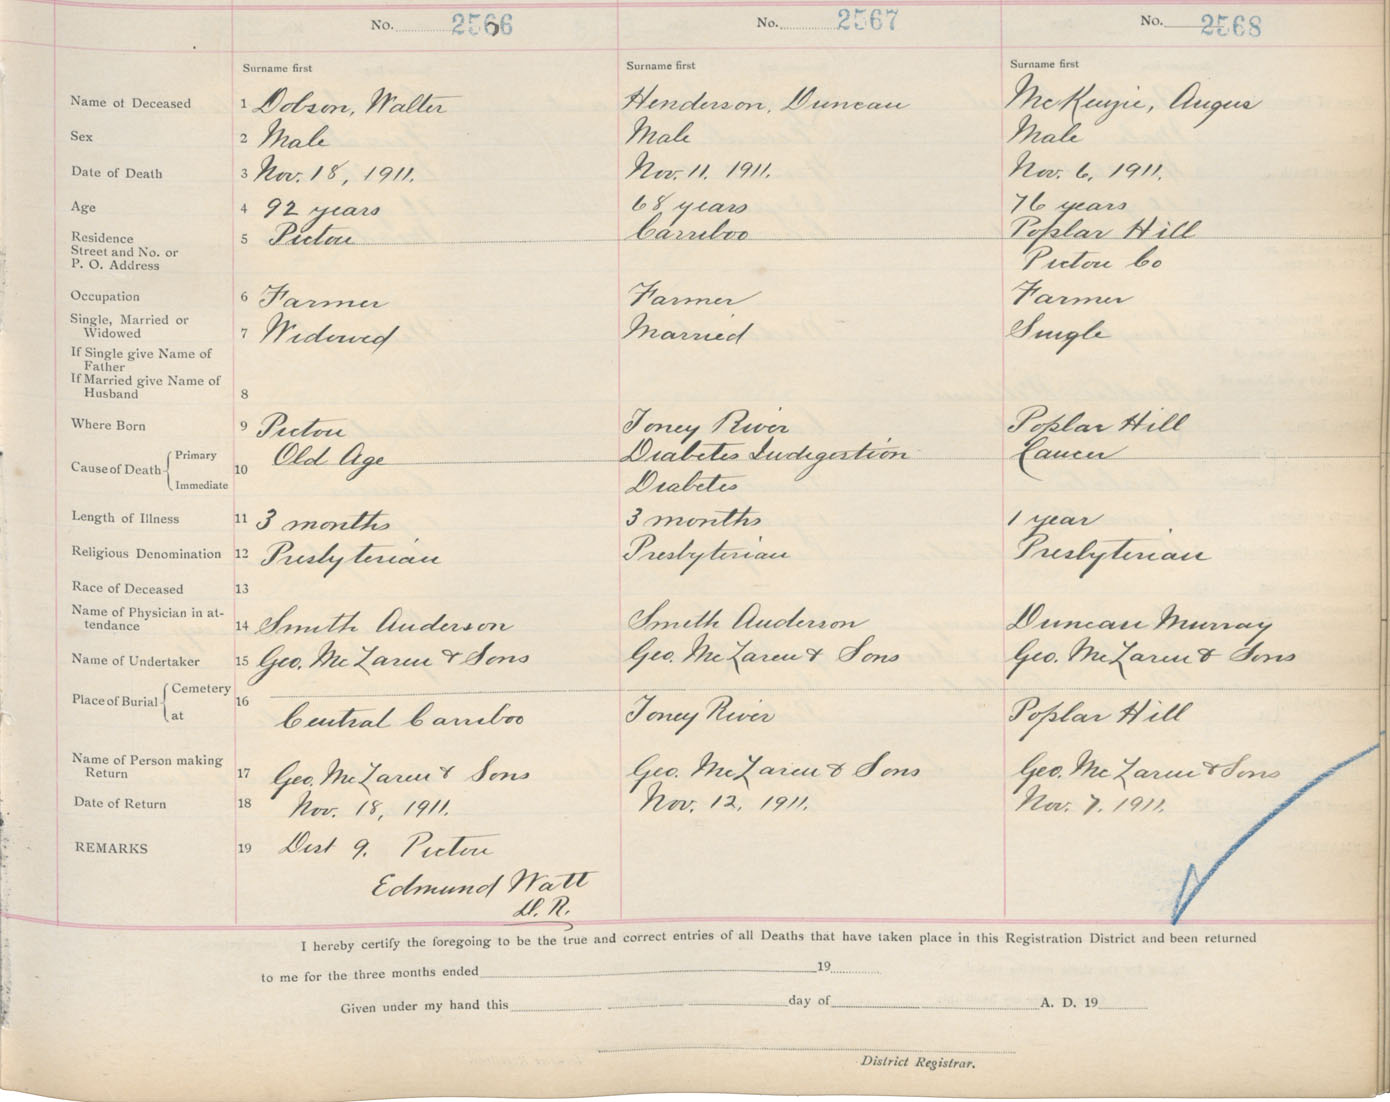 No. 2566 No. 2567 No. 2568
Surname first Surname first Surname first
Name of Deceased 1 Dobson, Walter Henderson, Duncan McKenzie, Angus
Sex 2 Male Male Male
Date of Death 3 Nov. 18, 1911. Nov. 11. 1911. Nov. 6, 1911.
Age 4 92 years 68 years 76 years
Residence 5 Pictou Carriboo Poplar Hill
Street and No. or
P. O. Address Pictou Co
Occupation 6 Farmer Farmer Farmer
Single, Married or
Widowed 7 Widowed Married Single
If Single give Name of
Father
If Married give Name of
Husband 8
Where Born 9 Pictou Toney River Poplar Hill
Cause of Death Primary 10 Old Age Diabetes Indigestion Cancer
Immediate Diabetes
Length of Illness 11 3 months 3 months 1 year
Religious Denomination 12 Presbyterian Presbyterian Presbyterian
Race of Deceased 13
Name of Physician in at-
tendance 14 Smith Anderson Smith Anderson Duncan Murray
Name of Undertaker 15 Geo. McLaren & Sons Geo. McLaren & Sons Geo. McLaren & Sons
Place of Burial Cemetery 16
at Central Carriboo Toney River Poplar Hill
Name of Person making
Return 17 Geo. McLaren & Sons Geo. McLaren & Sons Geo. McLaren & Sons
Date of Return 18 Nov. 18, 1911. Nov. 12, 1911. Nov. 7. 1911.
REMARKS 19 Dist 9. Pictou
Edmund Watt
D. R.
I hereby certify the foregoing to be the true and correct entries of all Deaths that have taken place in this Registration District and been returned
to me for the three months ended 19
Given under my hand this day of A. D. 19
District Registrar.